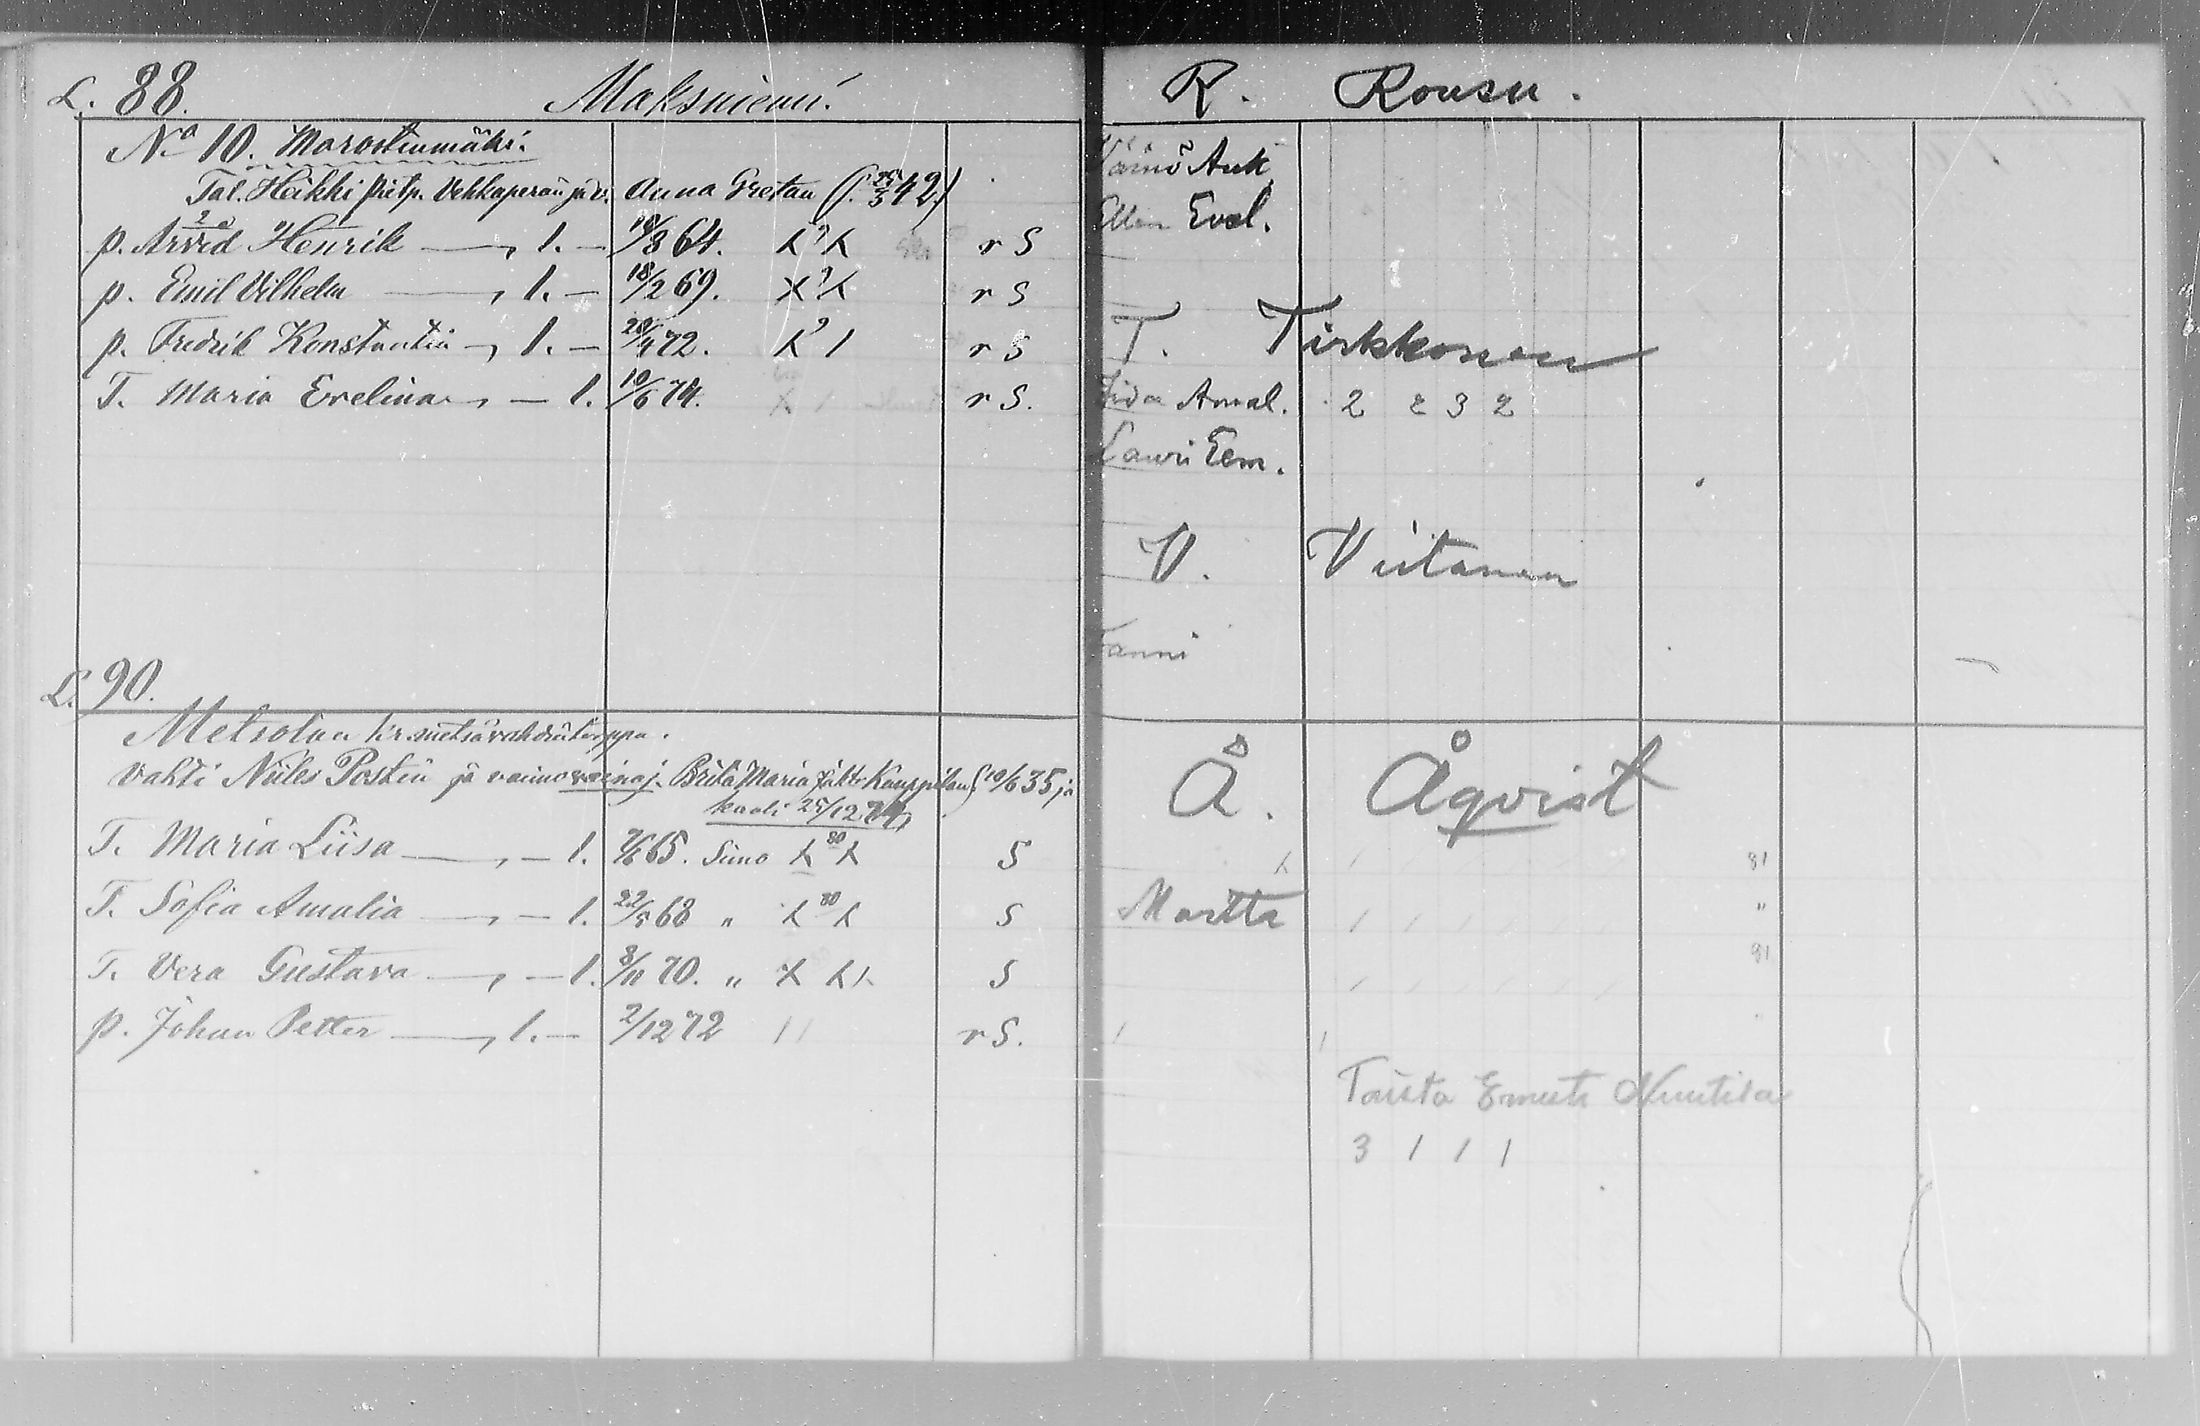 L. 88. Maksniemi.
No 10. Marostenmäki.
Tal. Heikki Pietp. Vehkaperän ja v. Anna Gretan (s. 25/3 42.)
p. Arvid Henrik 1. — /8 64. r S
p. Emil Vilhelm 1. — 18/2 69. r S
p. Fredrik Konstantin 1. — 72. r S
T. Maria Evelina — 1. 10/6 74. r S.
L. 90.
Metsolan kr. metsävahdintorppa.
Vahti Niiles Postin ja vaimovainaj. Brita Maria Kauppilan 10/6 35 ja
kuoli 25/12 74
T. Maria Liisa — 1. 65. Simo 80 S
T. Sofia Amalia — 1. 22/8 68 " 80 S
T. Vera Gustava — 1. 8/11 70. " S
p. Johan Petter 1. — 2/12 72 r S.
R. Rousu.
Väinö Ant.
Ellen Evel.
T. Tirkkonen
Amal. 2 2 3 2
Lauri Eem.
V. Viitanen
Fanni
Å. Åqvist
81
Martta "
81
Taisto Nuutila
3 1 1 1